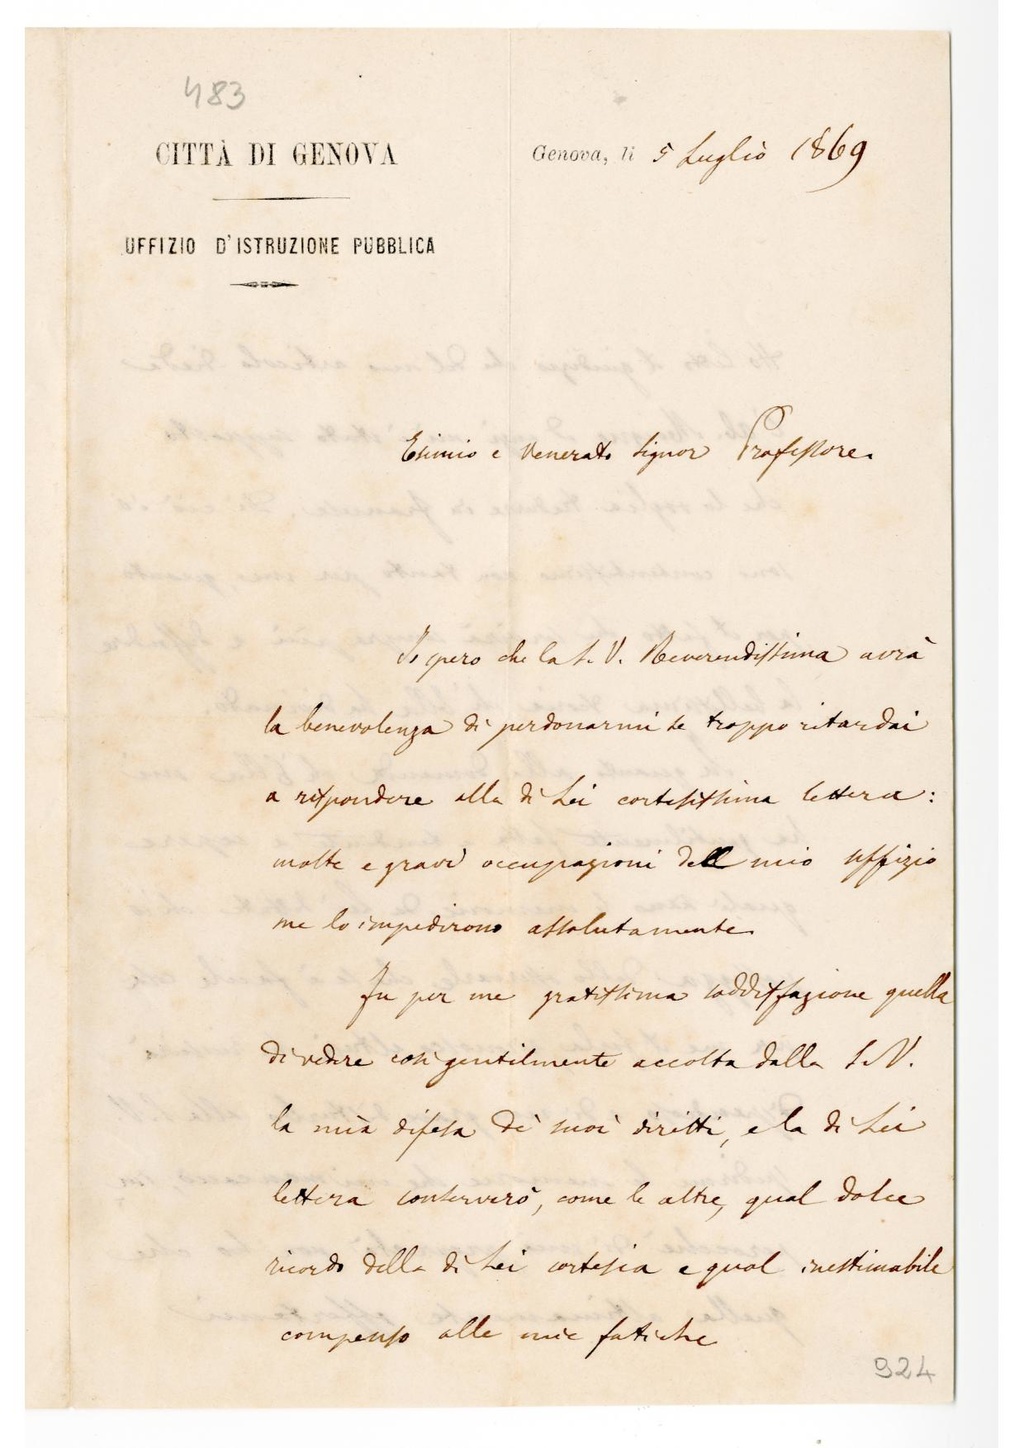 483
CITTÀ DI GENOVA
Genova, li 5 Luglio 1869
UFFIZIO D'ISTRUZIONE PUBBLICA
Esimio e Venerato Signor Professore.
Io spero che la S. V. Reverendissima avrà
la benevolenza di perdonarmi se troppo ritardai
a rispondere alla di Lei cortesissima lettera:
molte e gravi occupazioni dell mio uffizio
me lo impedirono assolutamente.
Fu per me gratissima soddisfazione quella
di vedere così gentilmente accolta dalla S. V.
la mia difesa de' suoi diritti, e la di Lei
lettera conserverò, come le altre, qual dolce
ricordo della di Lei cortesia e qual inestimabile
compenso alle mie fatiche
924